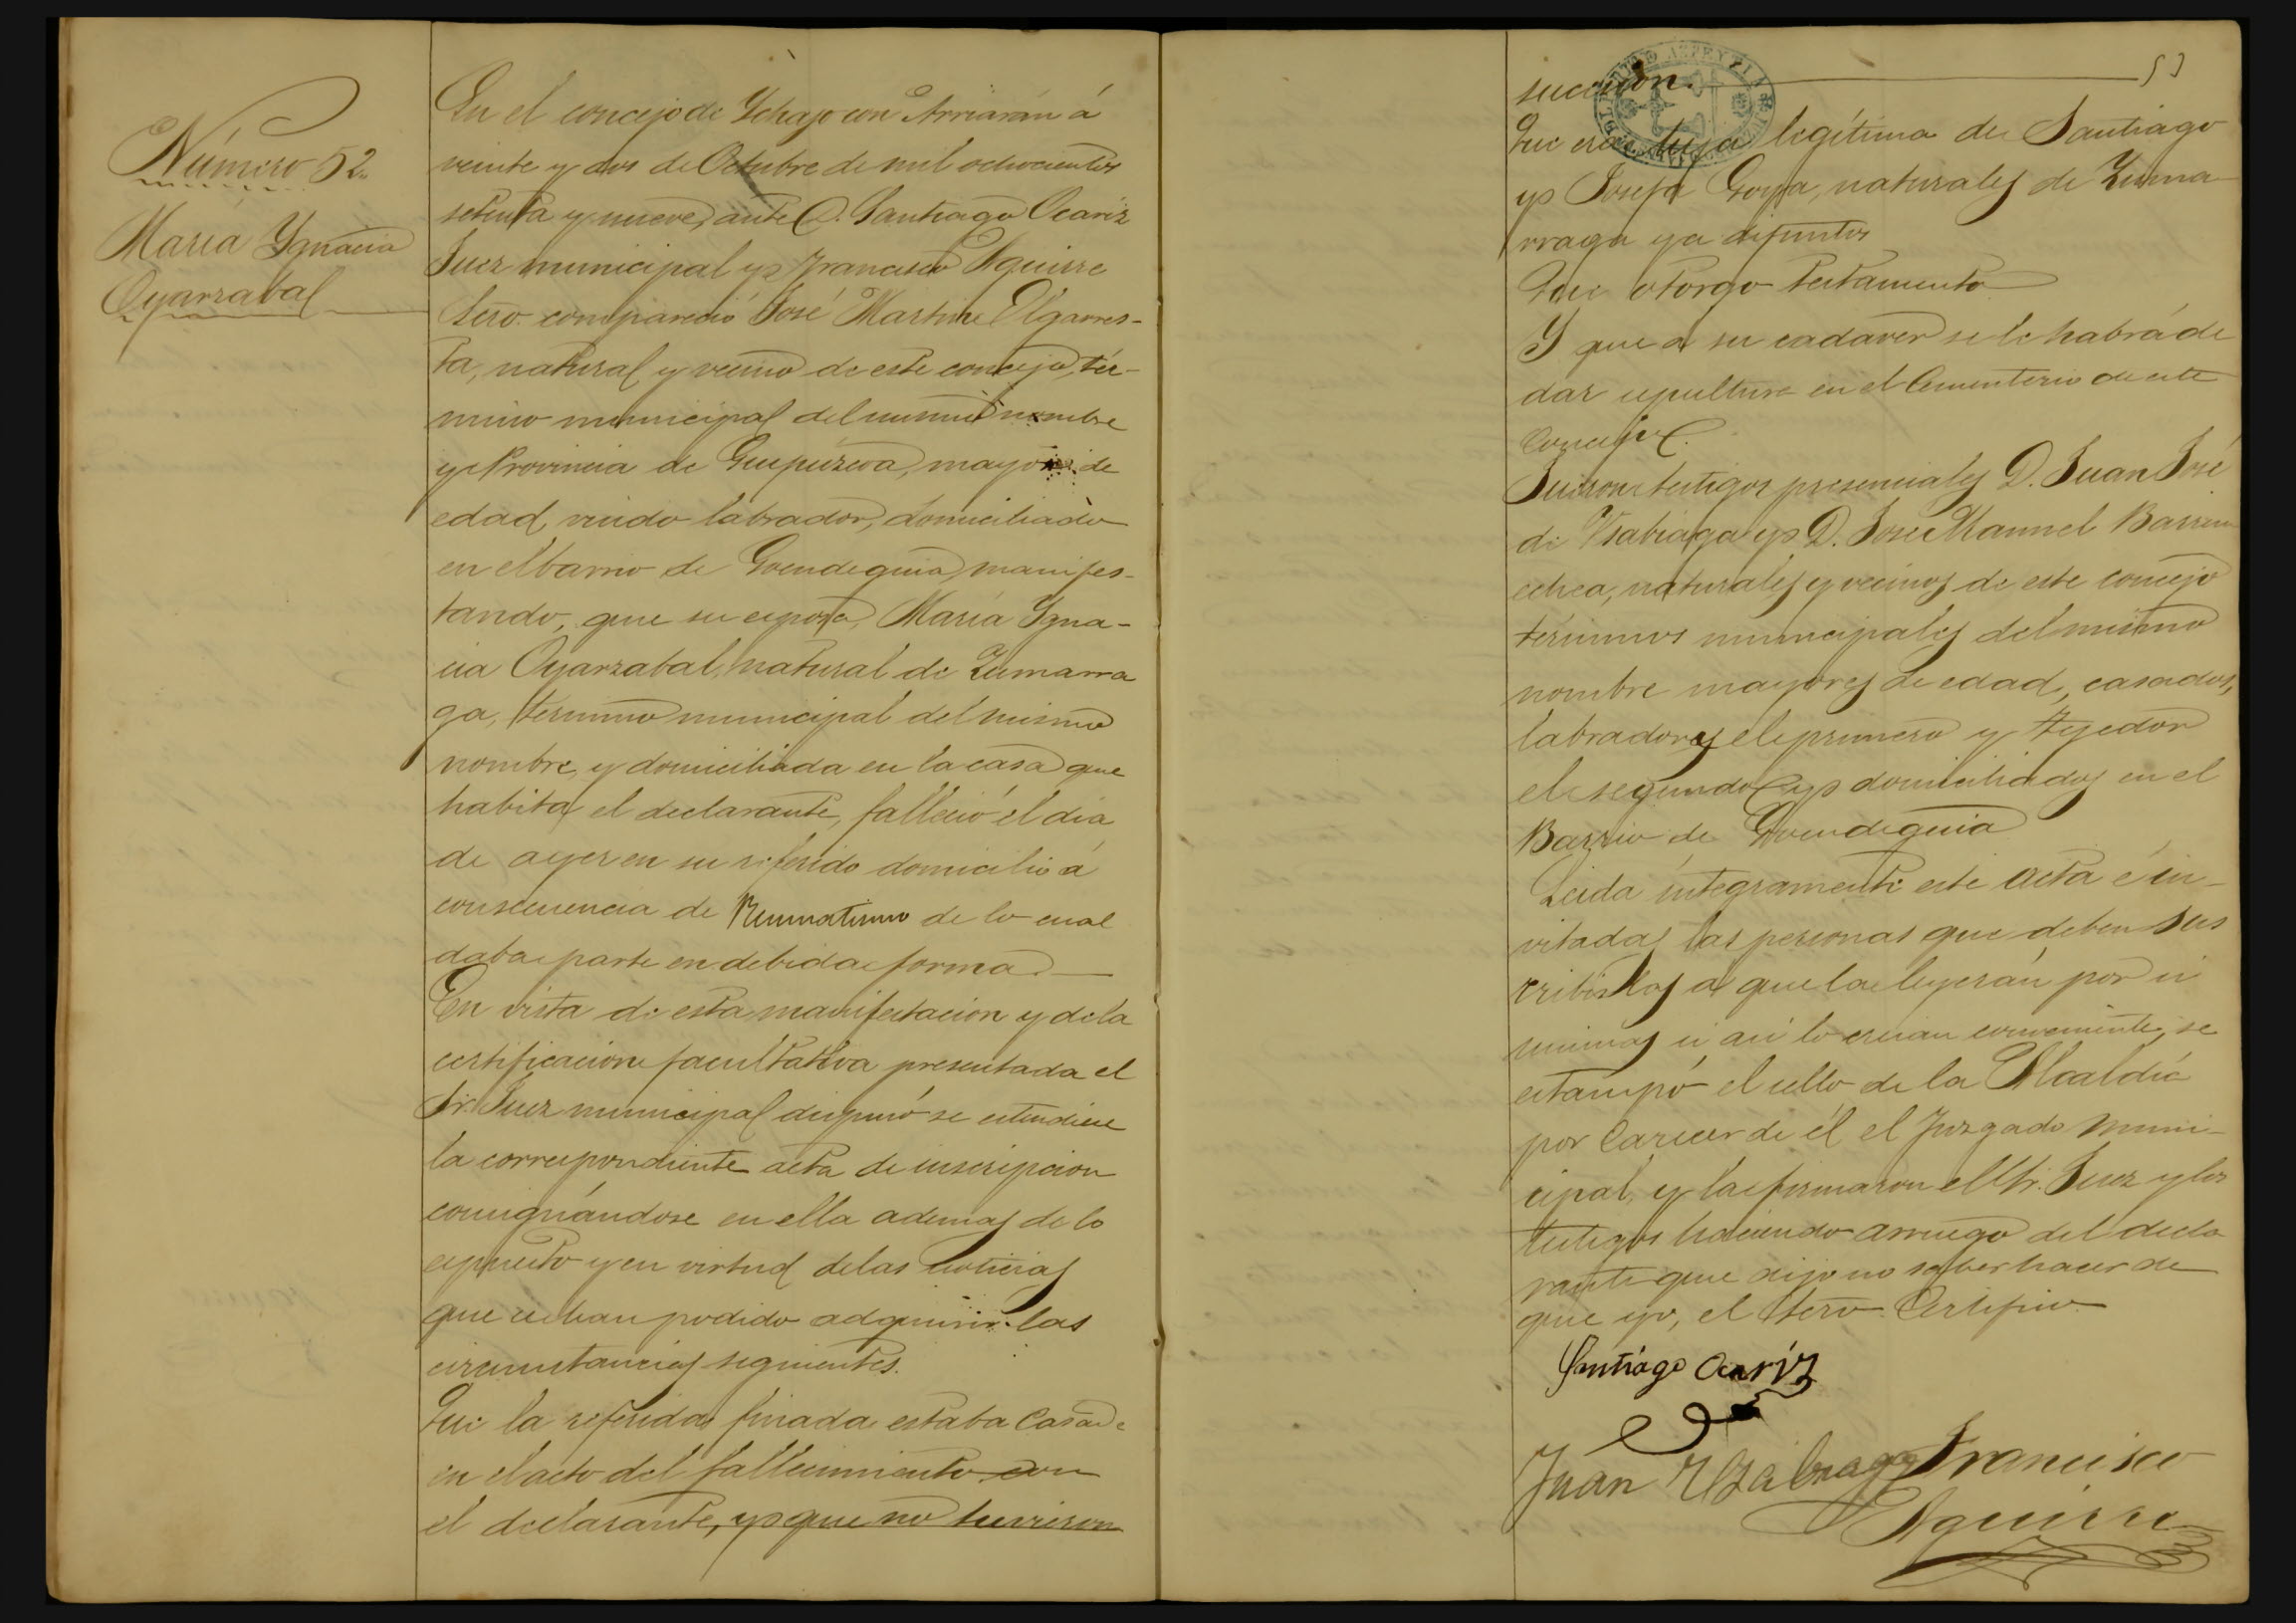 Número 52.
María Ygnacia
Oyarzabal
En el concejo de Ychaso con Arriarán á
veinte y dos de Octubre de mil ochocientos
setenta y nueve, ante D. Santiago Ocariz
Juez municipal y Francisco Aguirre
Scro. compareció José Martin Elgarres-
ta, natural y vecino de este concejo, tér-
mino municipal del mismo nombre
y Provincia de Guipúzcoa, mayor de
edad, viudo labrador, domiciliado
en el barrio de Goendeguia, manifes-
tando, que su esposa, María Ygna-
cia Oyarzabal, natural de Zumarra
ga, término municipal del mismo
nombre, y domiciliada en la casa que
habita el declarante, falleció el dia
de ayer en su referido domicilio á
consecuencia de Reumatismo de lo cual
daba parte en debida forma.
En vista de esta manifestacion y de la
certificacion facultativa presentada el
Sr. Juez municipal dispusó se estendiese
la correspondiente acta de inscripcion
consignándose en ella ademas de lo
espuesto y en virtud de las noticias
que se han podido adquirir las
circunstancias siguientes.
Que la referida finada estaba casada
en el acto del fallecimiento con
el declarante, y que no tuvieron
53
succesion.
Que era hija legítima de Santiago
y Josefa Goya, naturales de Zuma
rraga ya difuntos
Que otorgo testamento
Y que a su cadaver se le habrá de
dar sepultura en el Cementerio de este
Concejo.
Fueron testigos presenciales D. Juan José
de Usabiaga y D. Jose Manuel Barren
echea, naturales y vecinos de este concejo
términos municipales del mismo
nombre mayores de edad, casados,
labradores el primero y Tejedor
el segundo y domiciliados en el
Barrio de Goendeguia
Leida íntegramente este acta é in-
vitadas las personas que deben sus
cribirlas a que la leyerán por si
mismas si asi lo creian conveniente, se
estampó el sello de la Alcaldía
por Carecer de él el Juzgado Muni-
cipal, y la firmaron el Sr. Juez y los
testigos haciendo arruego del decla
rante que dijo no saber hacer de
que yo, el Scro. Certifico.
Santiago Ocariz
Juan Usabiaga Francisco
Aguirre